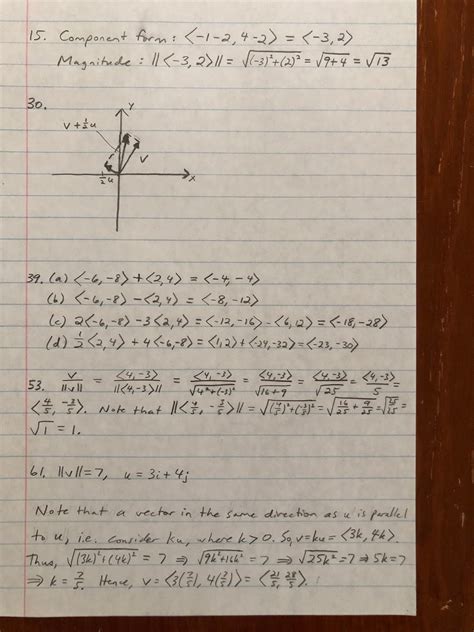 15. Component form: ⟨-1-2, 4-2⟩ = ⟨-3, 2⟩
Magnitude: ||⟨-3, 2⟩|| = √((-3)²+(2)²) = √(9+4) = √13
30.
y
v + ½u
v
½u
x
39. (a) ⟨-6, -8⟩ + ⟨2, 4⟩ = ⟨-4, -4⟩
(b) ⟨-6, -8⟩ - ⟨2, 4⟩ = ⟨-8, -12⟩
(c) 2⟨-6, -8⟩ - 3⟨2, 4⟩ = ⟨-12, -16⟩ - ⟨6, 12⟩ = ⟨-18, -28⟩
(d) ½⟨2, 4⟩ + 4⟨-6, -8⟩ = ⟨1, 2⟩ + ⟨-24, -32⟩ = ⟨-23, -30⟩
53. v/||v|| = ⟨4, -3⟩/||⟨4, -3⟩|| = ⟨4, -3⟩/√(4²+(-3)²) = ⟨4, -3⟩/√(16+9) = ⟨4, -3⟩/√25 = ⟨4, -3⟩/5 =
⟨4/5, -3/5⟩. Note that ||⟨4/5, -3/5⟩|| = √((4/5)²+(-3/5)²) = √(16/25 + 9/25) = √(25/25) =
√1 = 1.
61. ||v|| = 7, u = 3i + 4j
Note that a vector in the same direction as u is parallel
to u, i.e. consider ku, where k > 0. So, v = ku = ⟨3k, 4k⟩.
Thus, √((3k)²+(4k)²) = 7 ⇒ √(9k²+16k²) = 7 ⇒ √(25k²) = 7 ⇒ 5k = 7
⇒ k = 7/5. Hence, v = ⟨3(7/5), 4(7/5)⟩ = ⟨21/5, 28/5⟩.